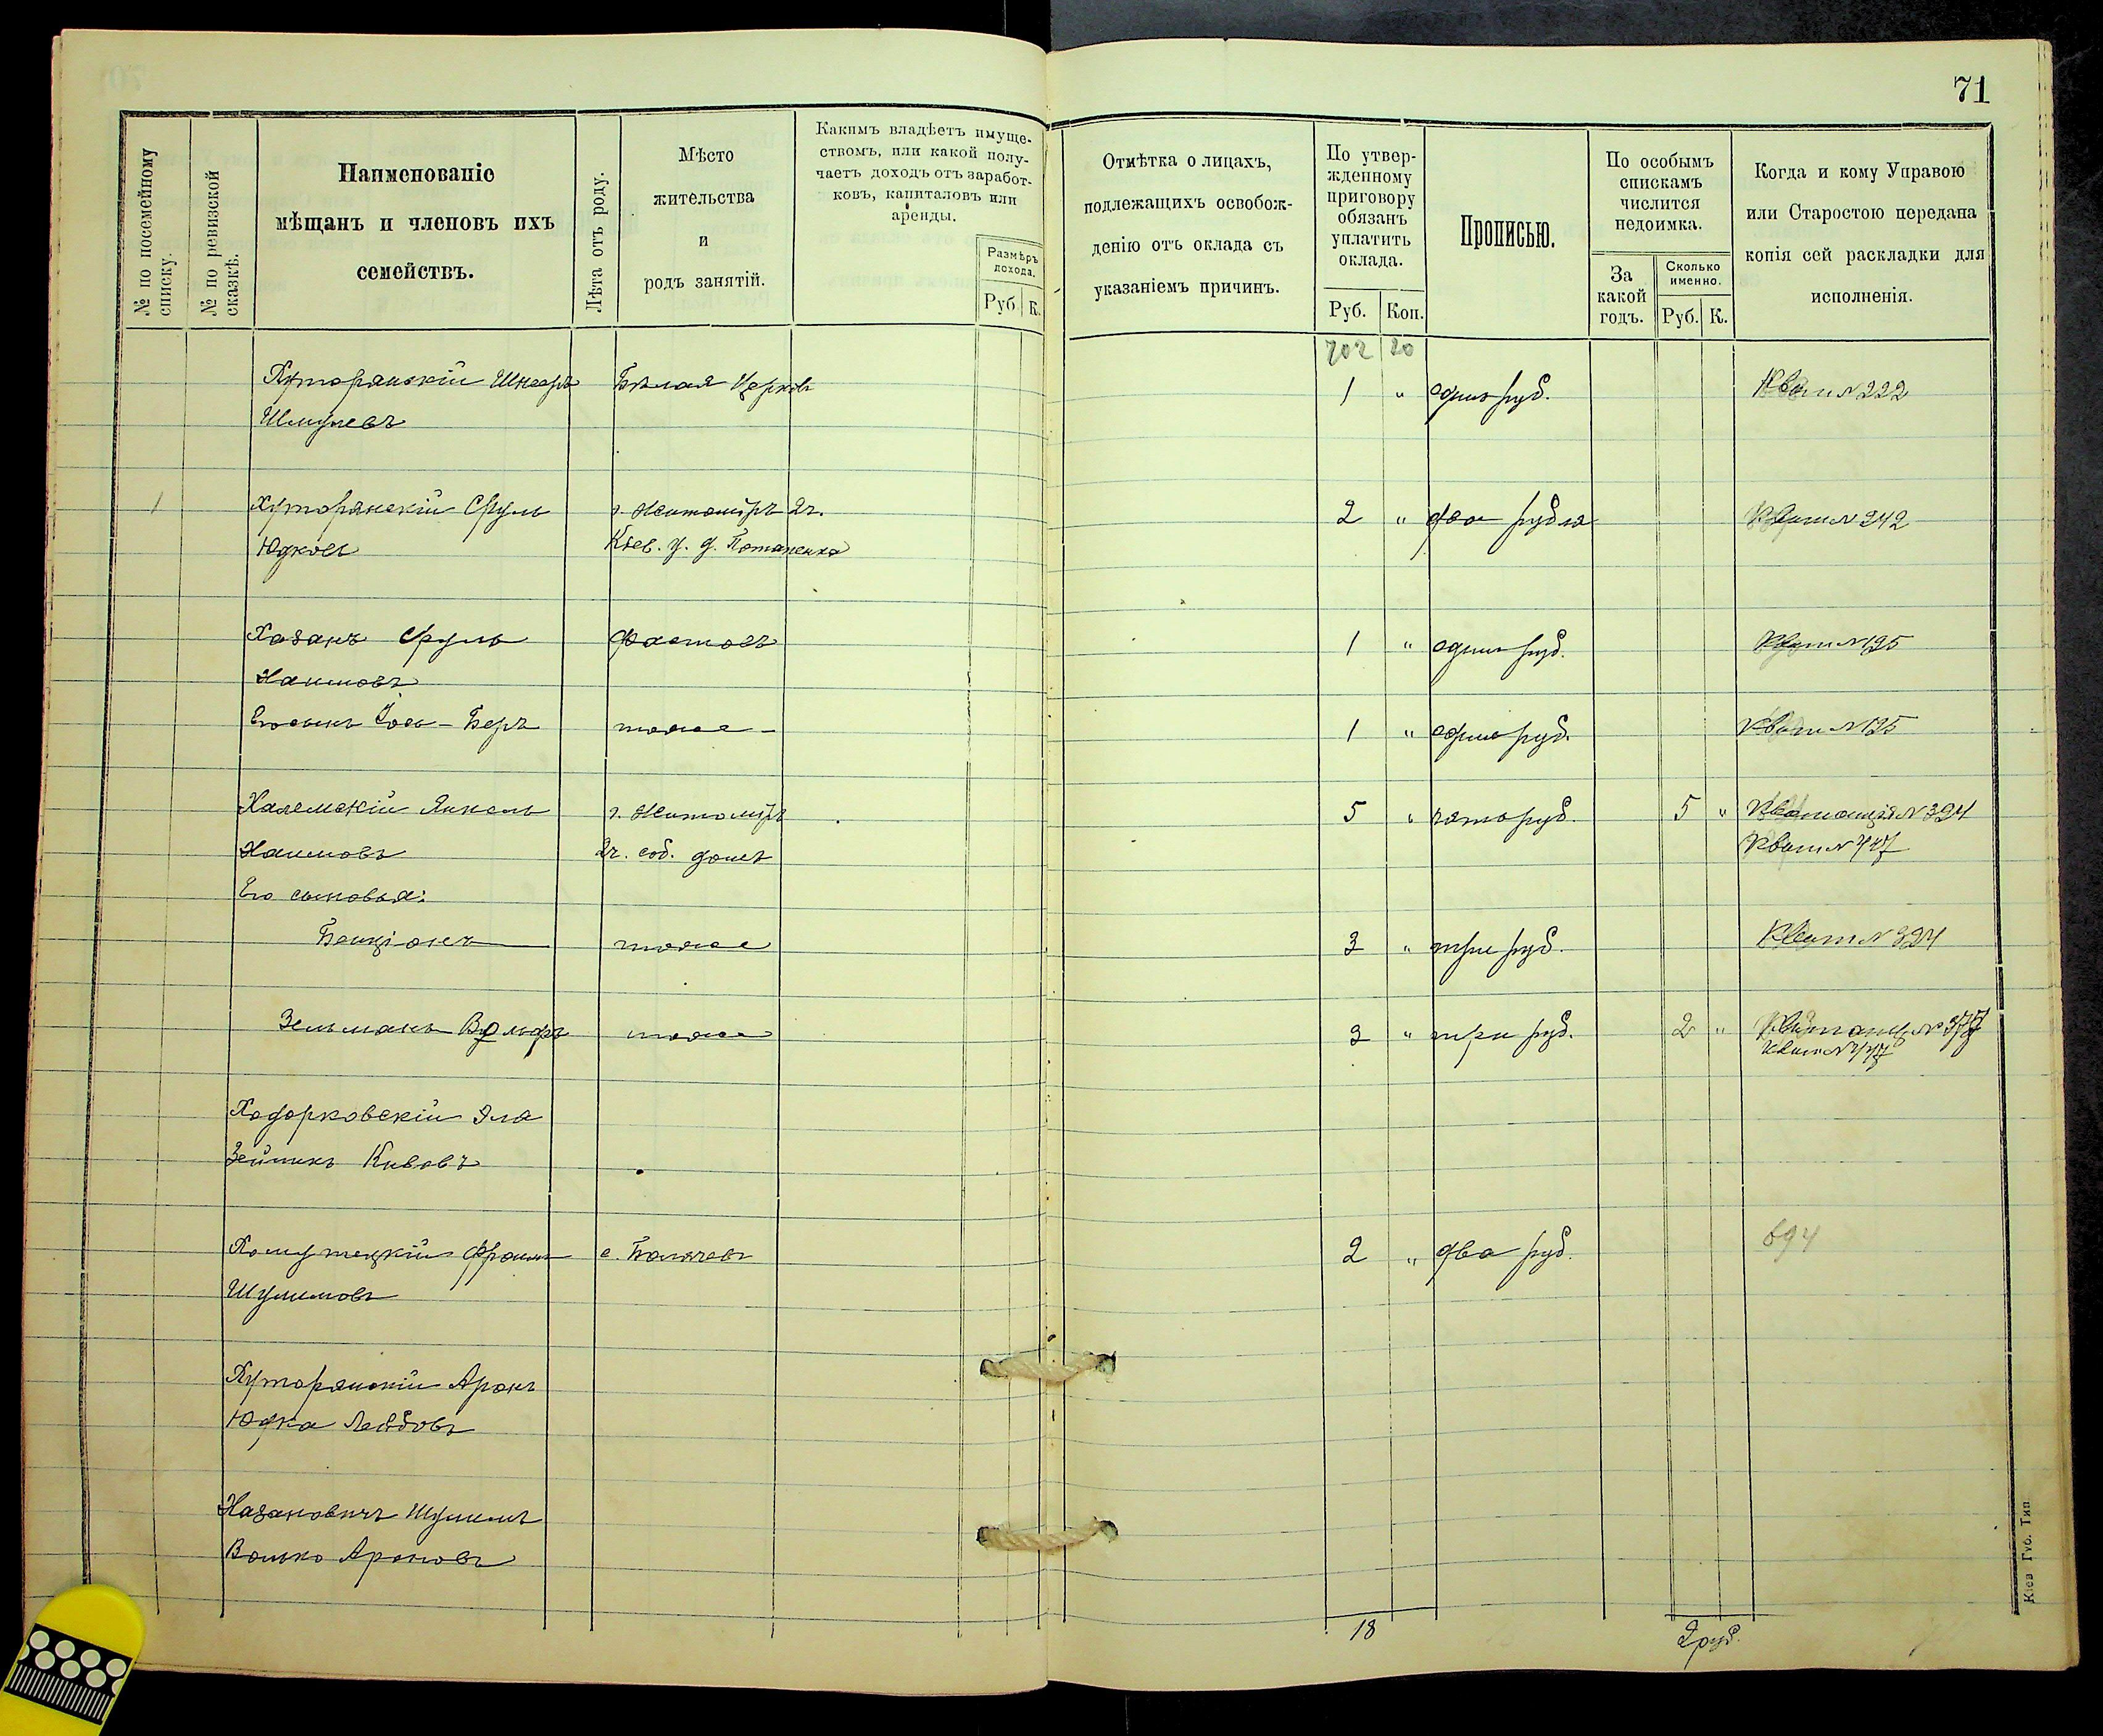 71
№ по посемейному списку.
№ по ревизской сказкѣ.
Наименованіе
мѣщанъ и членовъ ихъ
семействъ.
Лѣта отъ роду.
Мѣсто
жительства
и
родъ занятій.
Какимъ владѣетъ имуще-
ствомъ, или какой полу-
чаетъ доходъ отъ заработ-
ковъ, капиталовъ или
аренды.
Размѣръ
дохода.
Руб. К.
Отмѣтка о лицахъ,
подлежащихъ освобож-
денію отъ оклада съ
указаніемъ причинъ.
По утвер-
жденному
приговору
обязанъ
уплатить
оклада.
Руб. Коп.
Прописью.
По особымъ
спискамъ
числится
недоимка.
За
какой
годъ.
Сколько
именно.
Руб. К.
Когда и кому Управою
или Старостою передана
копія сей раскладки для
исполненія.
702 20
Хуторянскій Шнееръ Бѣлая Церковь 1 " одинъ руб. Квит № 222
Шмулевъ
1 Хуторянскій Сруль г. Житоміръ 2ч. 2 " два рубля Квит № 242
Юдковъ Кіев. у. д. Потапенка
Хазанъ Сруль Фастовъ 1 " одинъ руб. Квит № 195
Хаимовъ
Его сынъ Іось-Беръ тоже 1 " одинъ руб. Квит № 195
Халемскій Янкель г. Житоміръ 5 " пять руб. 5 " Квитанція № 394
Хаимовъ 2ч. соб. домъ Квит № 447
Его сыновья:
Бенціонъ тоже 3 " три руб. Квит № 394
Зельманъ Вольфъ тоже 3 " три руб. 2 " Квитанц № 377
Квит № 447
Ходорковскій Эла
Зейликъ Кивовъ
Хомутецкій Фроимъ с. Болячевъ 2 " два руб. 694
Шулимовъ
Хуторянскій Аронъ
Юдка Лейбовъ
Хазановичъ Шулимъ
Волько Ароновъ
18 2 руб.
Кіев. Губ. Тип